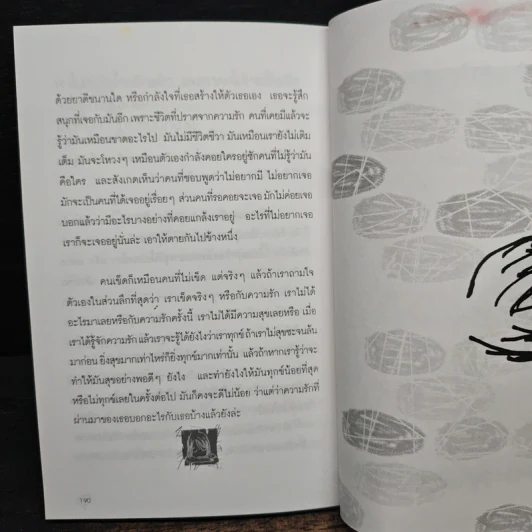 ด้วยยาดีขนานใด หรือกำลังใจที่เธอสร้างให้ตัวเธอเอง เธอจะรู้สึก
สนุกที่เจอกับมันอีก เพราะชีวิตที่ปราศจากความรัก คนที่เคยมีแล้วจะ
รู้ว่ามันเหมือนขาดอะไรไป มันไม่มีชีวิตชีวา มันเหมือนเรายังไม่เติม
เต็ม มันจะโหวงๆ เหมือนตัวเองกำลังคอยใครอยู่ซักคนที่ไม่รู้ว่ามัน
คือใคร และสังเกตเห็นว่าคนที่ชอบพูดว่าไม่อยากมี ไม่อยากเจอ
มักจะเป็นคนที่ได้เจออยู่เรื่อยๆ ส่วนคนที่รอคอยจะเจอ มักไม่ค่อยเจอ
บอกแล้วว่ามีอะไรบางอย่างที่คอยแกล้งเราอยู่ อะไรที่ไม่อยากเจอ
เราก็จะเจออยู่นั่นล่ะ เอาให้ตายกันไปข้างหนึ่ง
คนเข็ดก็เหมือนคนที่ไม่เข็ด แต่จริงๆ แล้วถ้าเราถามใจ
ตัวเองในส่วนลึกที่สุดว่า เราเข็ดจริงๆ หรือกับความรัก เราไม่ได้
อะไรมาเลยหรือกับความรักครั้งนี้ เราไม่ได้มีความสุขเลยหรือ เมื่อ
เราได้รู้จักความรัก แล้วเราจะรู้ได้ยังไงว่าเราทุกข์ ถ้าเราไม่สุขซะจนล้น
มาก่อน ยิ่งสุขมากเท่าไหร่ก็ยิ่งทุกข์มากเท่านั้น แล้วถ้าหากเรารู้ว่าจะ
ทำให้มันสุขอย่างพอดีๆ ยังไง และทำยังไงให้มันทุกข์น้อยที่สุด
หรือไม่ทุกข์เลยในครั้งต่อไป มันก็คงจะดีไม่น้อย ว่าแต่ว่าความรักที่
ผ่านมาของเธอบอกอะไรกับเธอบ้างแล้วยังล่ะ
190